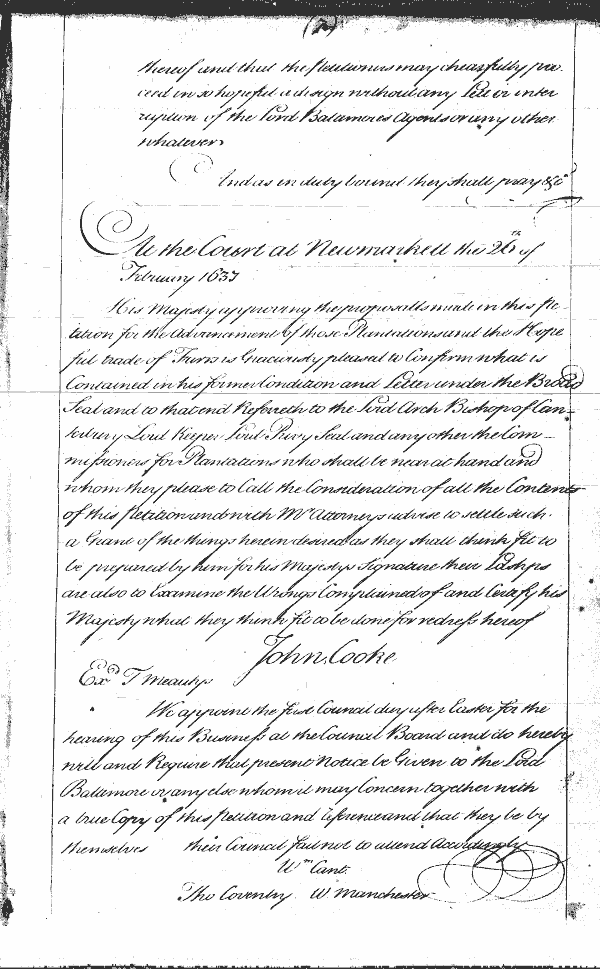 (2)
thereof and that the Petitioners may chearfully pro-
ceed in so hopefull a design without any Lett or inter
ruption of the Lord Baltamores Agents or any other
whatever
And as in duty bound they shall pray &c
At the Court at Newmarkett the 26th of
February 1637
His Majesty approving the proposalls made in this Pe-
tition for the Advancement of those Plantations and the Hope
full trade of Furrs is Graciously pleased to Confirm what is
Contained in his former Condition and Letter under the Broad
Seal and to that end Referreth to the Lord Arch Bishop of Can-
terbury Lord Keeper Lord Privy Seal and any other the Com-
missioners for Plantations who shall be near at hand and
whom they please to Call the Consideration of all the Contents
of this Petition and with Mr Attorneys advise to settle such
a Grant of the things herein desired as they shall think fit to
be prepared by him for his Majestys Signature their Ldshps
are also to Examine the Wrongs Complained of and Certify his
Majesty what they think fit to be done for redress hereof
John Cooke
Exd T Meautys
We appoint the first Council day after Easter for the
hearing of this Business at the Council Board and do hereby
will and Require that present Notice be Given to the Lord
Baltamore or any else whom it may Concern together with
a true Copy of this Petition and reference and that they be by
themselves their Council fail not to attend Accordingly
Wm Cant.
Tho Coventry W Manchester